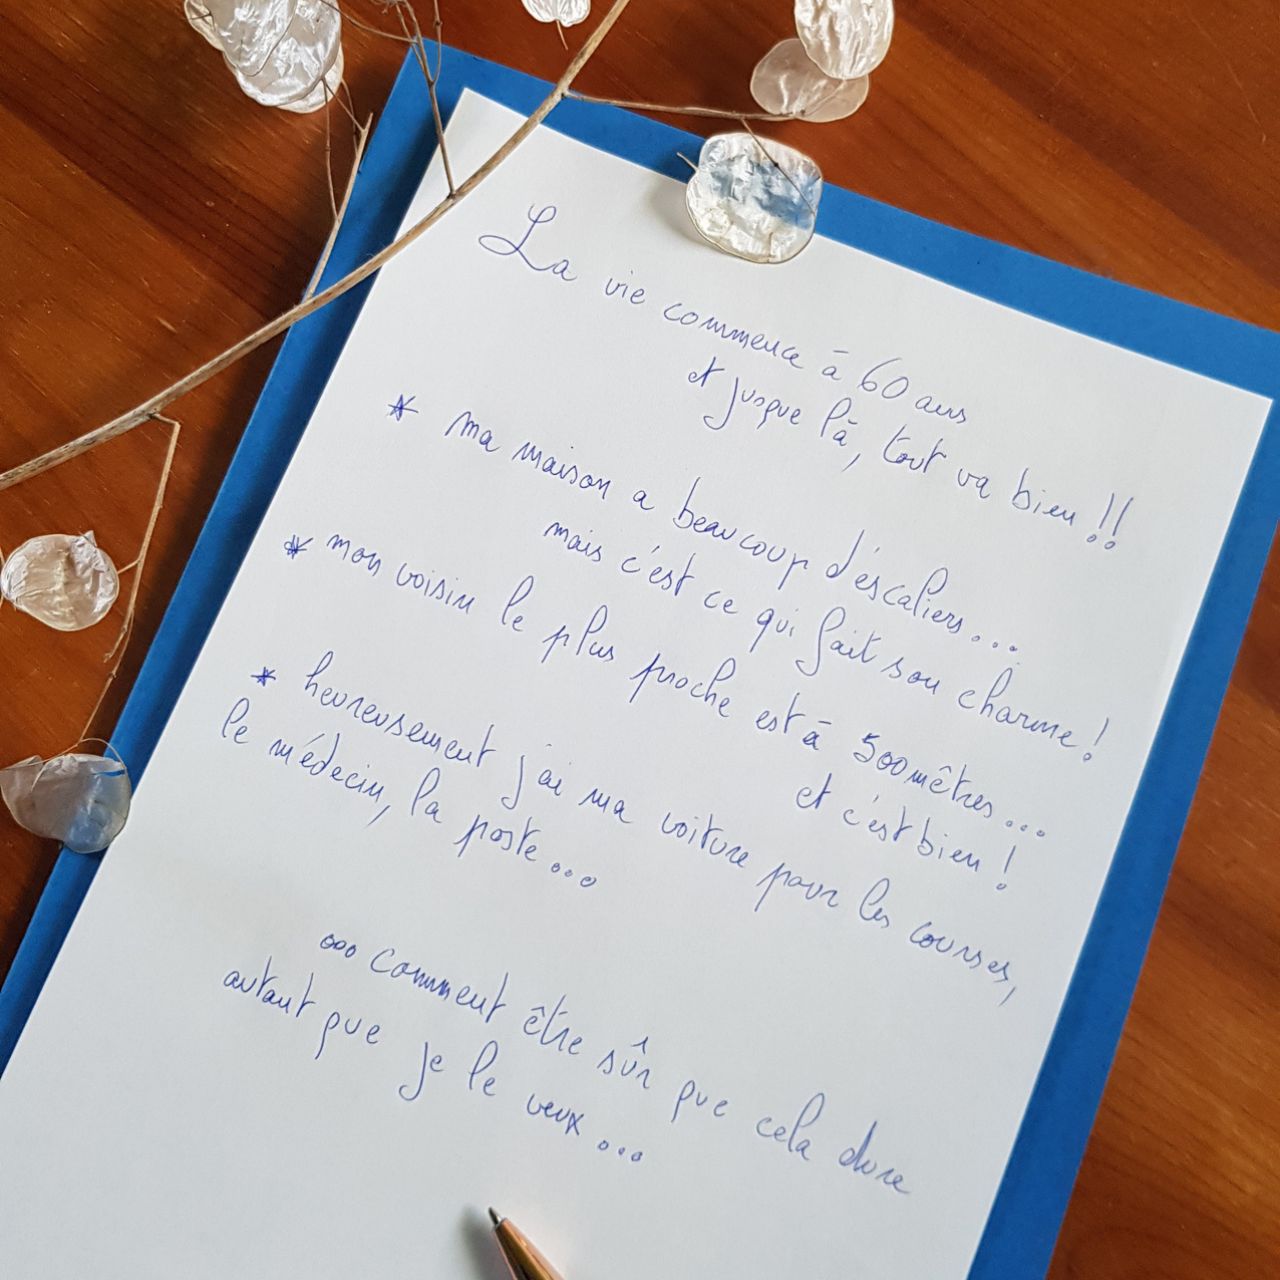 La vie commence à 60 ans
et jusque là, tout va bien !!
* ma maison a beaucoup d'escaliers...
mais c'est ce qui fait son charme !
* mon voisin le plus proche est à 500 mètres...
et c'est bien !
* heureusement j'ai ma voiture pour les courses,
le médecin, la poste...
... comment être sûr que cela dure
autant que je le veux...